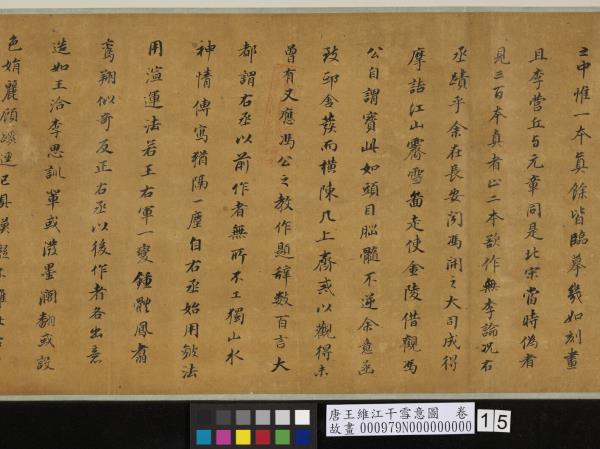 之中惟一本真餘皆臨摹幾如刻畫
且李營丘與元章同是北宋當時偽者
見三百本真者止二本欲作無李論況右
丞蹟乎余在長安聞馮開之大司成得
摩詰江山霽雪圖走使金陵借觀馮
公自謂寶此如頭目腦髓不逆余意
致邸舍發而橫陳几上齋戒以觀得未
曾有又應馮公之教作題辭數百言大
都謂右丞以前作者無所不工獨山水
神情傳寫猶隔一塵自右丞始用皴法
用渲運法若王右軍一變鍾體鳳翥
鸞翔似奇反正右丞以後作者各出意
造如王洽李思訓輩或潑墨瀾翻或設
色娟麗顧蹊逕已具模擬不難
唐王維江干雪意圖 卷
故畫 000979N000000000
15